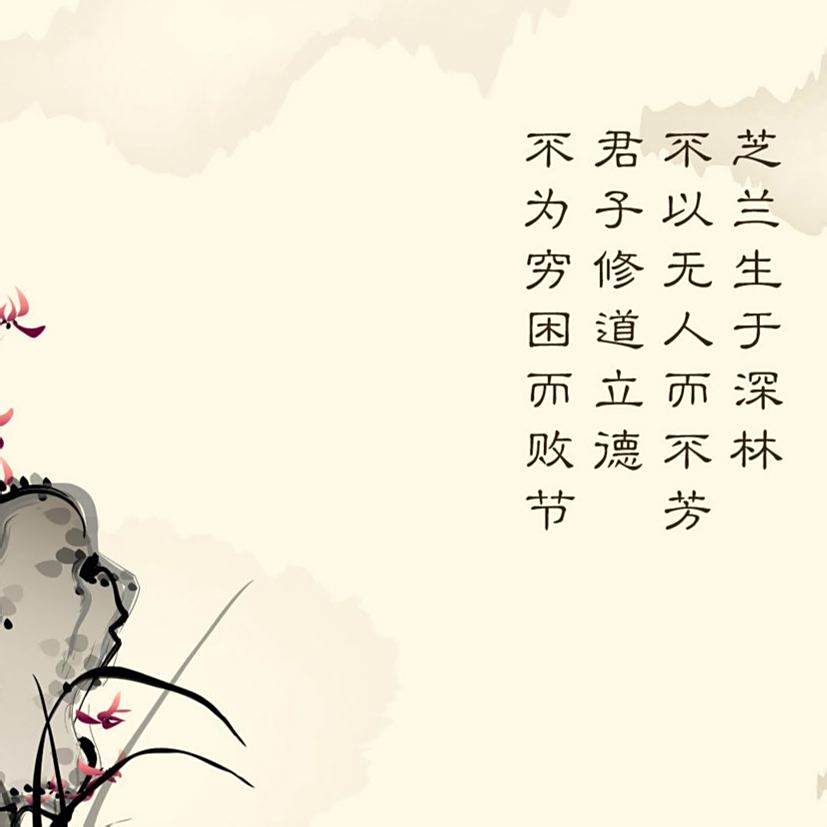 芝兰生于深林
不以无人而不芳
君子修道立德
不为穷困而败节